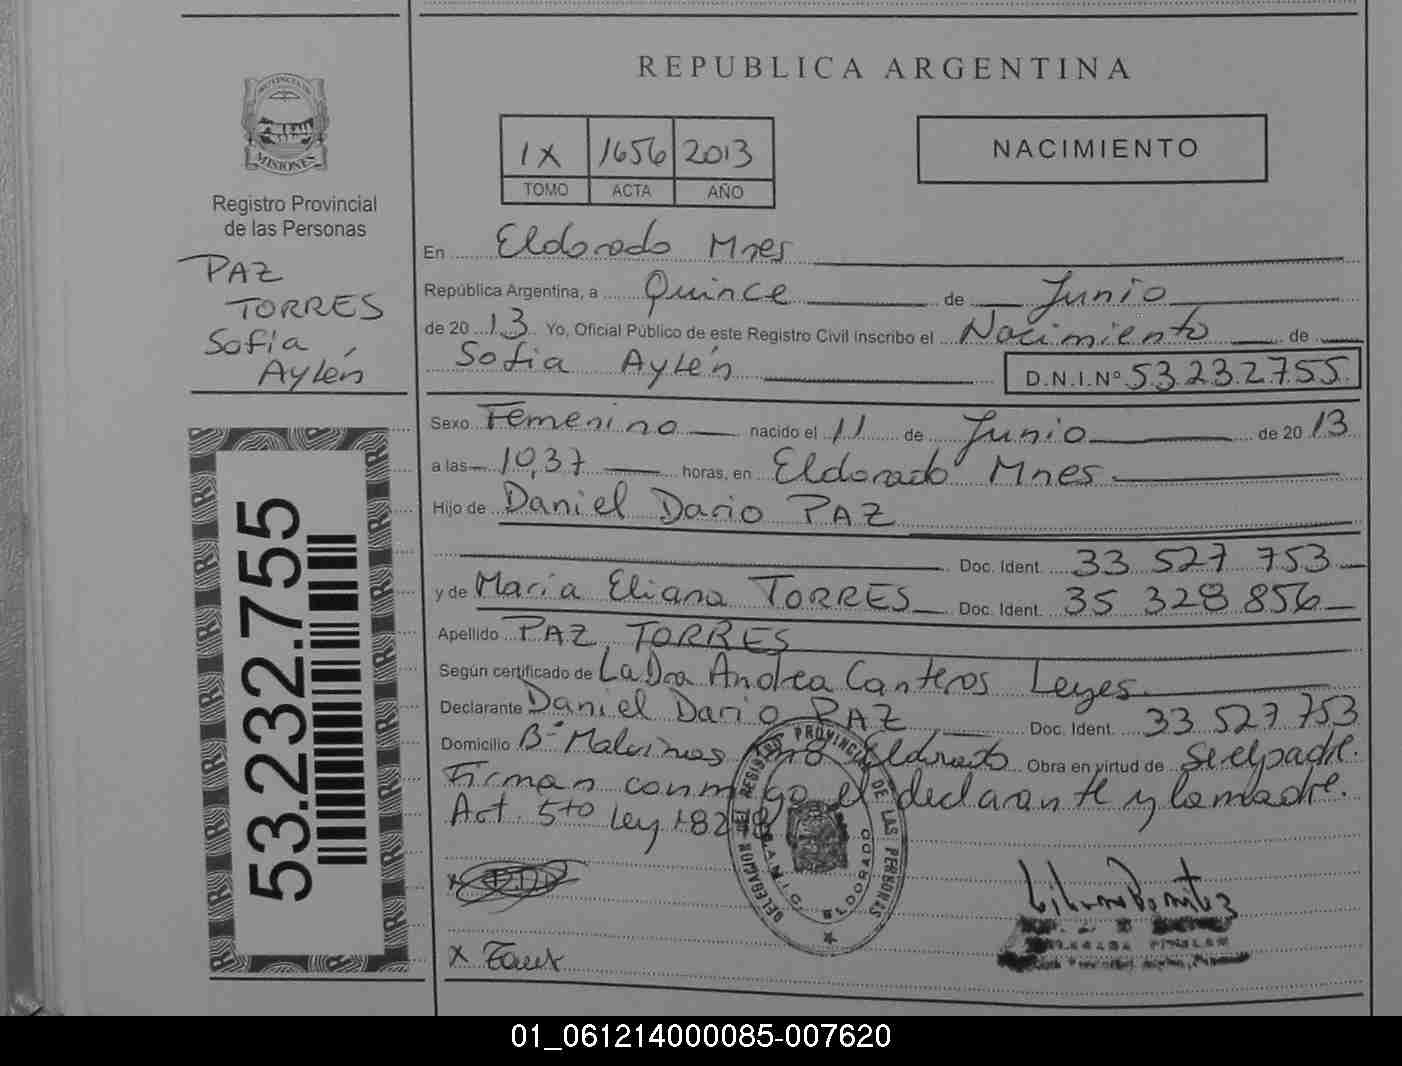 REPUBLICA ARGENTINA
PROVINCIA DE
MISIONES
Registro Provincial
de las Personas
PAZ
TORRES
Sofía
Aylén
53.232.755
IX 1656 2013
TOMO ACTA AÑO
NACIMIENTO
En Eldorado Mnes
República Argentina, a Quince de Junio
de 20 13 Yo, Oficial Público de este Registro Civil inscribo el Nacimiento de
Sofia Aylén D.N.I.Nº 53232755
Sexo Femenino nacido el 11 de Junio de 20 13
a las 10,37 horas, en Eldorado Mnes
Hijo de Daniel Dario PAZ
Doc. Ident. 33 527 753
y de María Eliana TORRES Doc. Ident. 35 328 856
Apellido PAZ TORRES
Según certificado de La Dra Andrea Canteros Leyes
Declarante Daniel Dario PAZ Doc. Ident. 33 527 753
Domicilio Bº Malvinas Eldorado Obra en virtud de Ser el padre.
Firman conmigo el declarante y la madre.
Art. 5to Ley 18248
DELEGACION DEL REGISTRO PROVINCIAL DE LAS PERSONAS
ELDORADO
x
x
01_061214000085-007620